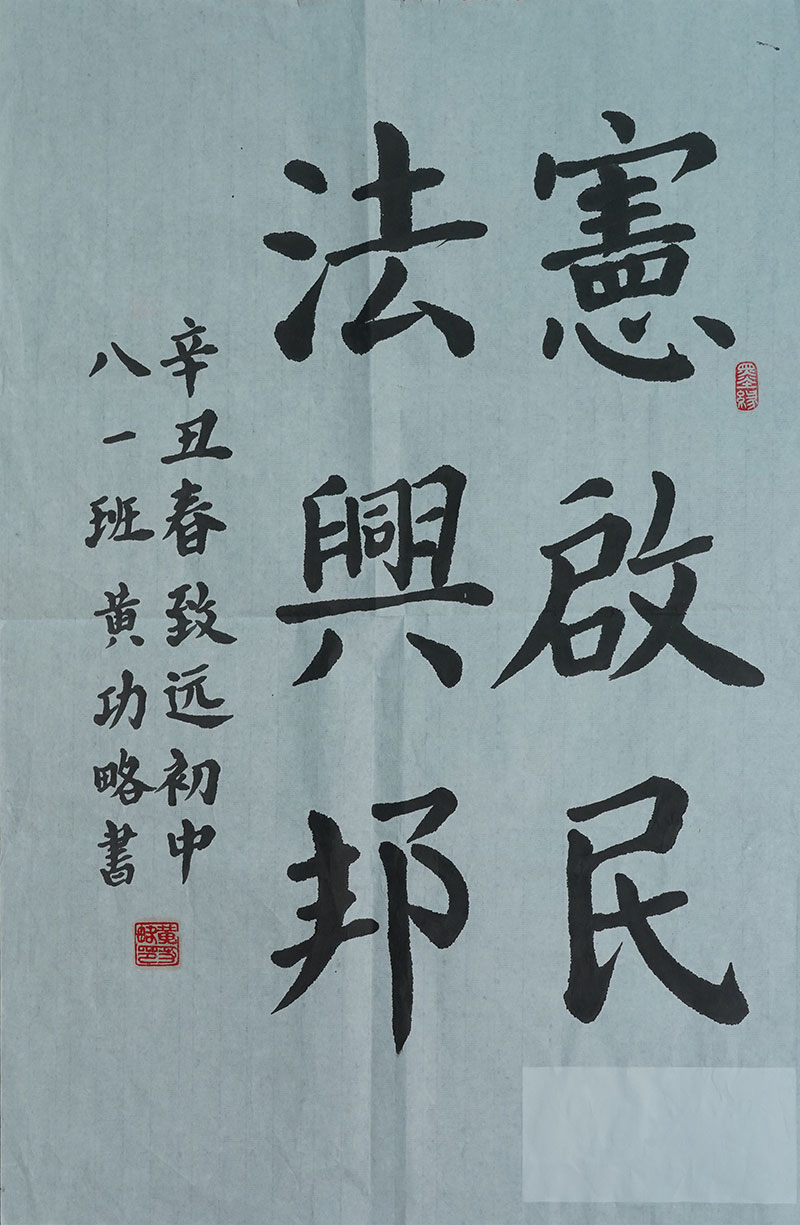 憲啟民
法興邦
辛丑春致远初中
八一班黄功略書
墨緣